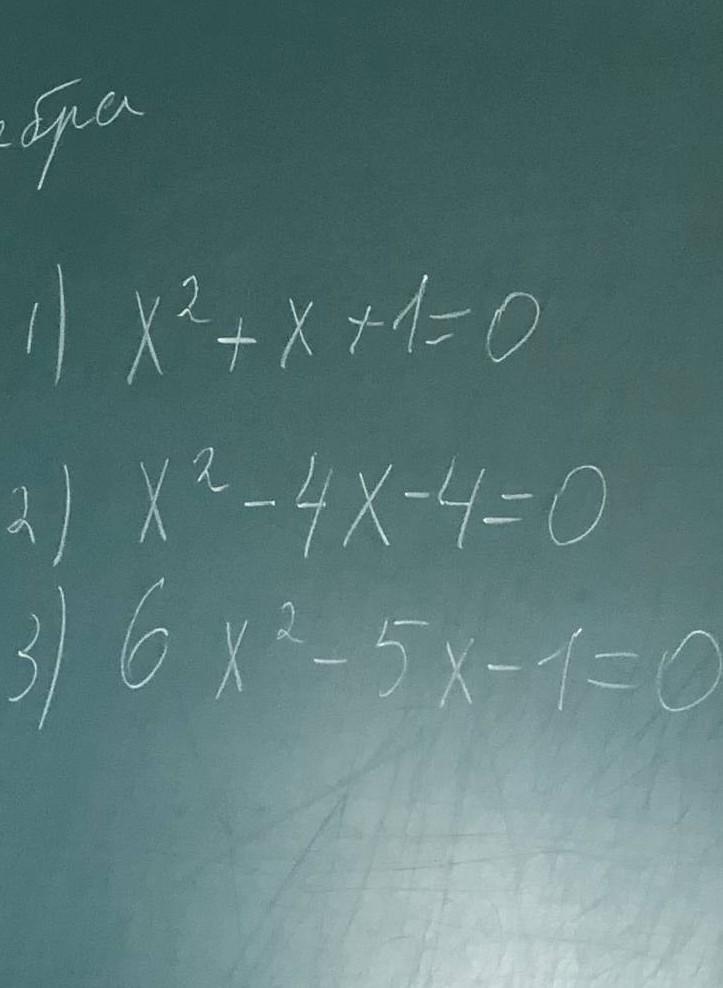 ебра
1) x² + x + 1 = 0
2) x² - 4x - 4 = 0
3) 6x² - 5x - 1 = 0